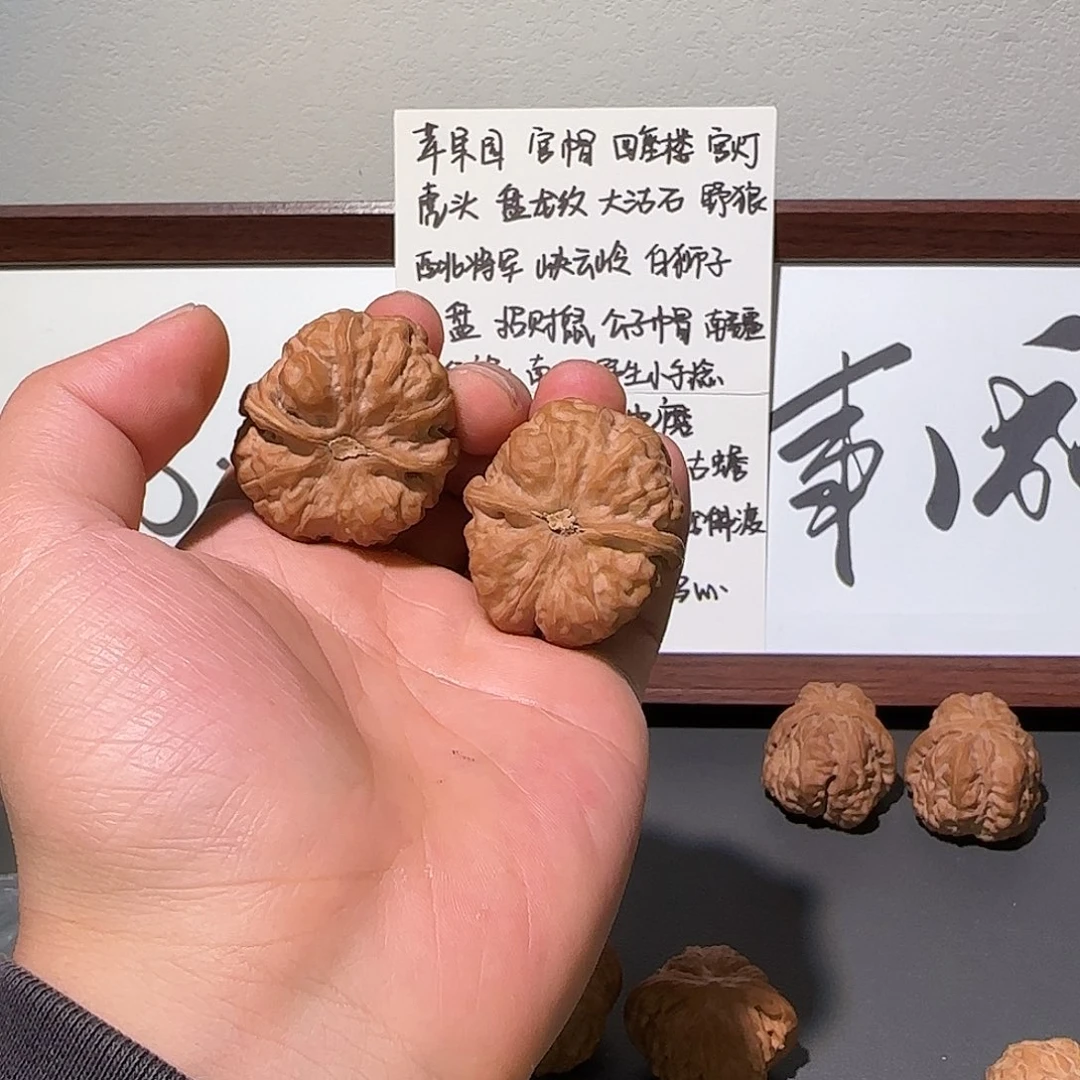 苹果园 官帽 四座楼 宫灯
虎头 盘龙纹 大沽石 野狼
西北将军 峡云岭 白狮子
盘 招财鼠 公子帽 南疆
南 野生小手捻
魔
古蟾
佛渡
事